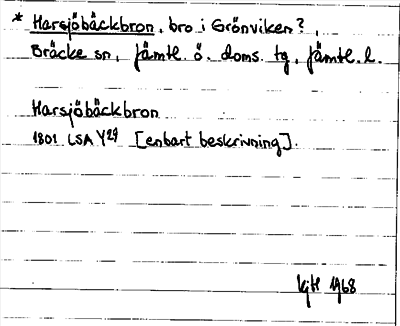 * Harsjöbäckbron, bro i Grönviken?,
Bräcke sn, Jämtl. ö. doms. tg, Jämtl. l.
Harsjöbäckbron
1801 LSA Y29 [enbart beskrivning].
1968